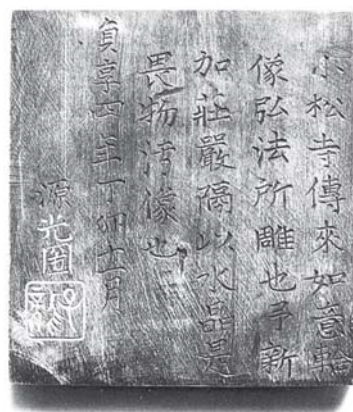 小松寺傳來如意輪
像弘法所雕也予新
加莊嚴隔以水晶是
畏物汚像也
貞享四年丁卯十一月
源光圀